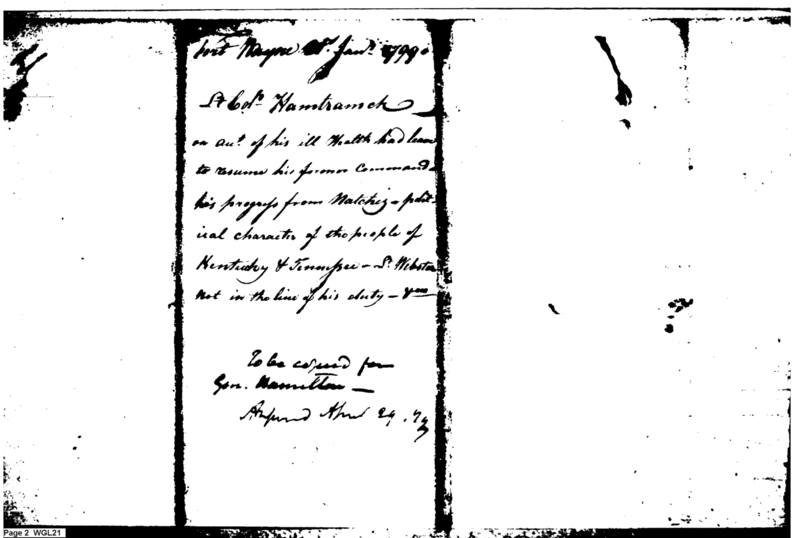 Fort Wayne 28th Jany. 1799.
Lt Colo. Hamtramck
on acct. of his ill Health had leave
to resume his former Command.
his progress from Natchez - polit-
ical character of the people of
Kentucky & Tennessee - Lt. Webster
not in the line of his duty -
To be copied for
Gen. Hamilton -
April 29. 99
Page 2 WGL21